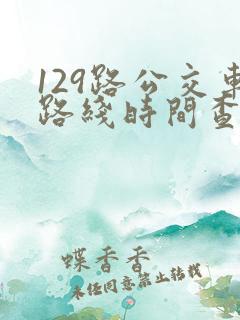 129路公交車
路綫時間查
蝶香香
未经同意禁止转载